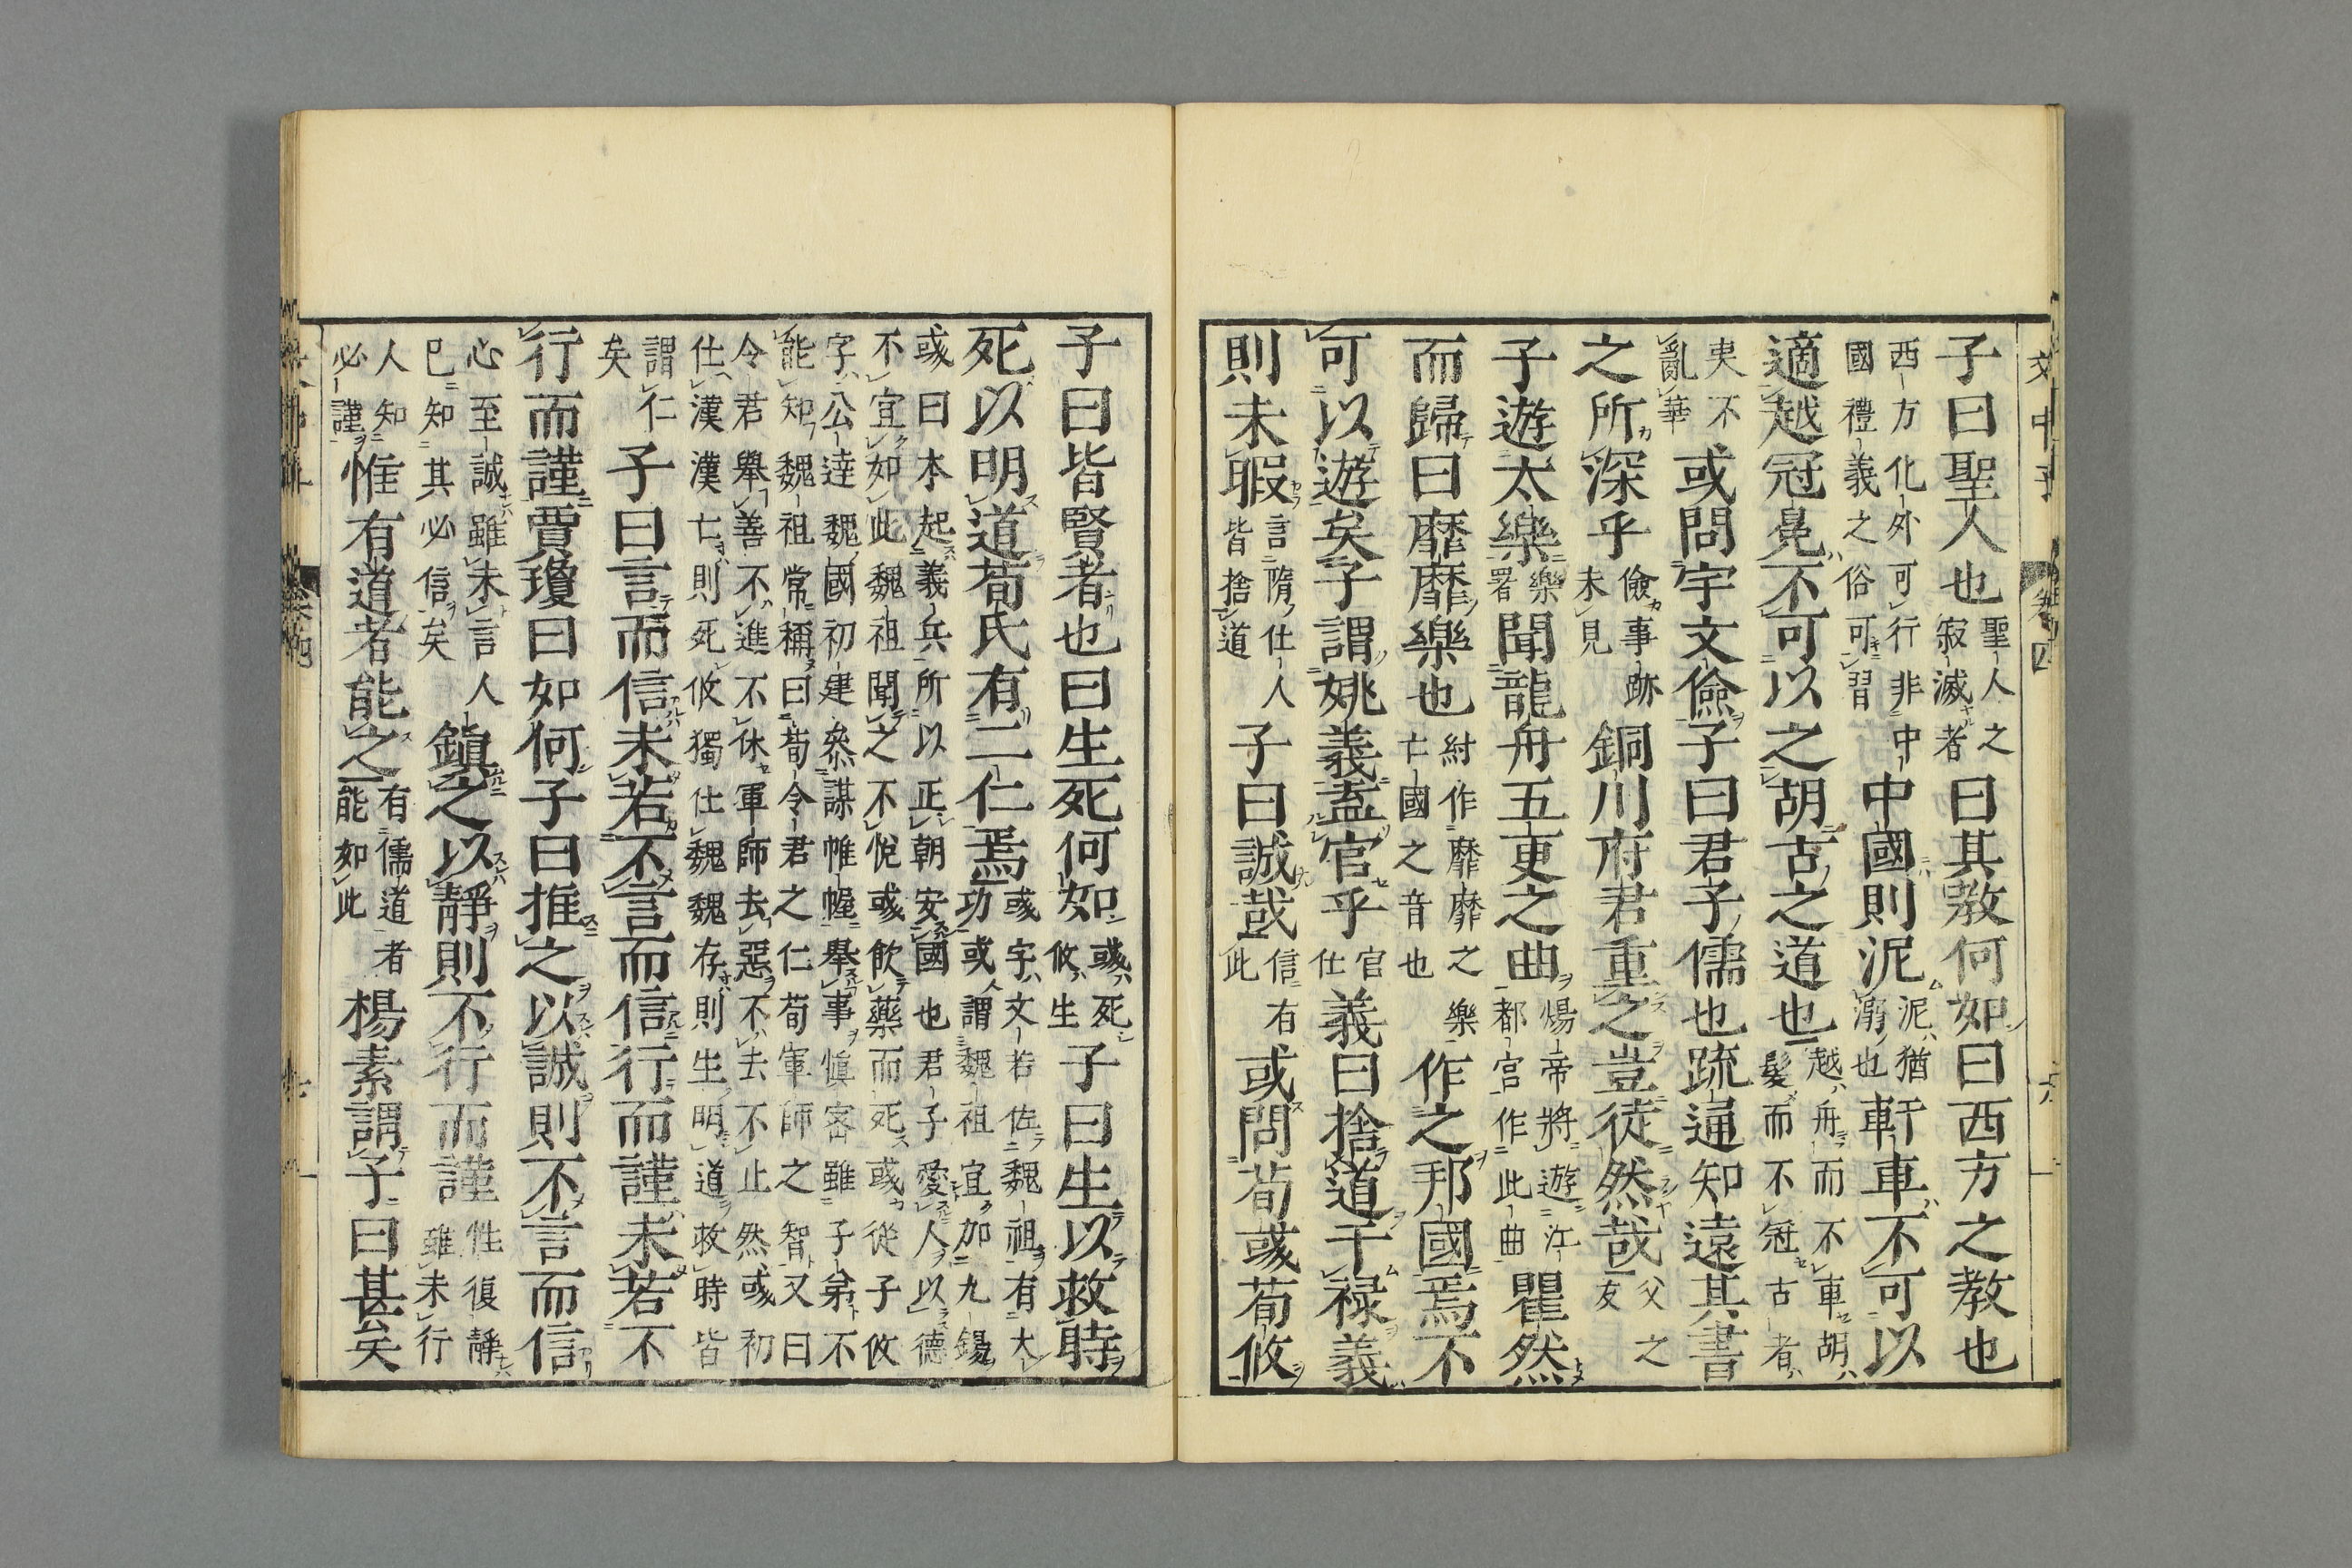 子曰聖人也聖人之寂滅者曰其敎何如曰西方之教也
西方化外可行非中國禮義之俗可習中國則泥泥猶溺也軒車不可以
適越冠冕不可以之胡古之道也越舟而不車胡髮而不冠古者
夷不亂華或問宇文儉子曰君子儒也疏通知遠其書
之所深乎儉事跡未見銅川府君重之豈徒然哉父之友
子遊太樂樂署聞龍舟五更之曲煬帝將遊江都宮作此曲瞿然
而歸曰靡靡樂也紂作靡靡之樂亡國之音也作之邦國焉不
可以遊矣子謂姚義盍官乎官仕義曰捨道干祿義
則未暇言隋仕人皆捨道子曰誠哉信有此或問荀彧荀攸
子曰皆賢者也曰生死何如彧死攸生子曰生以救時
死以明道荀氏有二仁焉彧字文若佐魏祖有大功或謂魏祖宜加九錫
彧曰本起義兵所以匡朝安國也君子愛人以德
不宜如此魏祖聞之不悅彧飲藥而死彧從子攸
字公達魏國初建參謀帷幄舉事慎密雖子弟不
能知魏祖常稱曰荀令君之仁荀軍師之智又曰
令君舉善不進不休軍師去惡不去不止然彧初
仕漢漢亡則死攸獨仕魏魏存則生明道救時皆
謂仁矣子曰言而信未若不言而信行而謹未若不
行而謹賈瓊曰如何子曰推之以誠則不言而信
心至誠雖未言人已知其必信矣鎭之以靜則不行而謹性復靜雖未行
人知必謹惟有道者能之有儒道者能如此楊素謂子曰甚矣